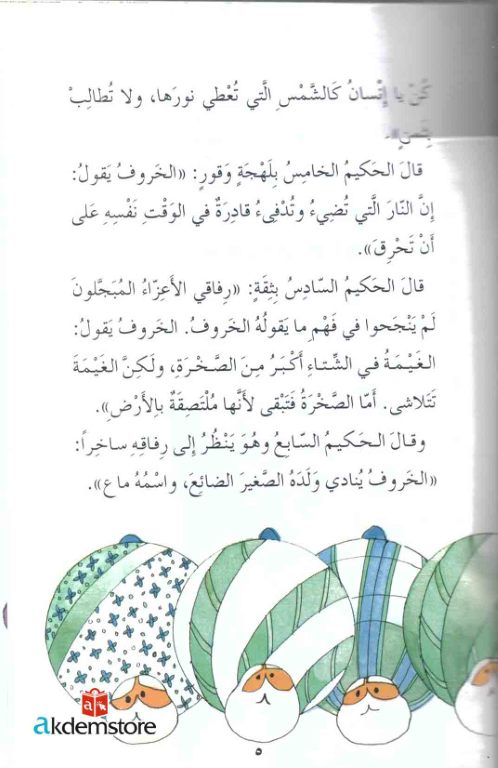 كُنْ يا إِنْسانُ كَالشَّمْسِ الَّتي تُعْطي نورَها، ولا تُطالِبْ
بِثَمنٍ».
قالَ الحَكيمُ الخامِسُ بِلَهْجَةٍ وَقورٍ: «الخَروفُ يَقولُ:
إِنَّ النّارَ الَّتي تُضيءُ وتُدْفِىءُ قادِرَةٌ في الوَقْتِ نَفْسِهِ عَلى
أَنْ تَحْرِقَ».
قالَ الحَكيمُ السّادِسُ بِثِقَةٍ: «رِفاقي الأَعِزّاءُ المُبَجَّلونَ
لَمْ يَنْجَحوا في فَهْمِ ما يَقولُهُ الخَروفُ. الخَروفُ يَقولُ:
الغَيْمَةُ في الشِّتاءِ أَكْبَرُ مِنَ الصَّخْرَةِ، ولَكِنَّ الغَيْمَةَ
تَتَلاشى. أَمّا الصَّخْرَةُ فَتَبْقى لأَنَّها مُلْتَصِقَةٌ بِالأَرْضِ».
وقالَ الحَكيمُ السّابِعُ وهُوَ يَنْظُرُ إِلى رِفاقِهِ ساخِراً:
«الخَروفُ يُنادي وَلَدَهُ الصَّغيرَ الضائِعَ، واسْمُهُ ماع».
akdemstore
٥